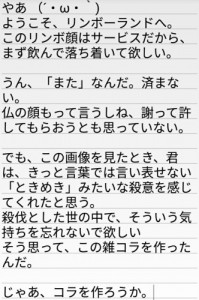 やあ （´・ω・｀)
ようこそ、リンボーランドへ。
このリンボ顔はサービスだから、
まず飲んで落ち着いて欲しい。
うん、「また」なんだ。済まな
い。
仏の顔もって言うしね、謝って許
してもらおうとも思っていない。
でも、この画像を見たとき、君
は、きっと言葉では言い表せない
「ときめき」みたいな殺意を感じ
てくれたと思う。
殺伐とした世の中で、そういう気
持ちを忘れないで欲しい
そう思って、この雑コラを作った
んだ。
じゃあ、コラを作ろうか。